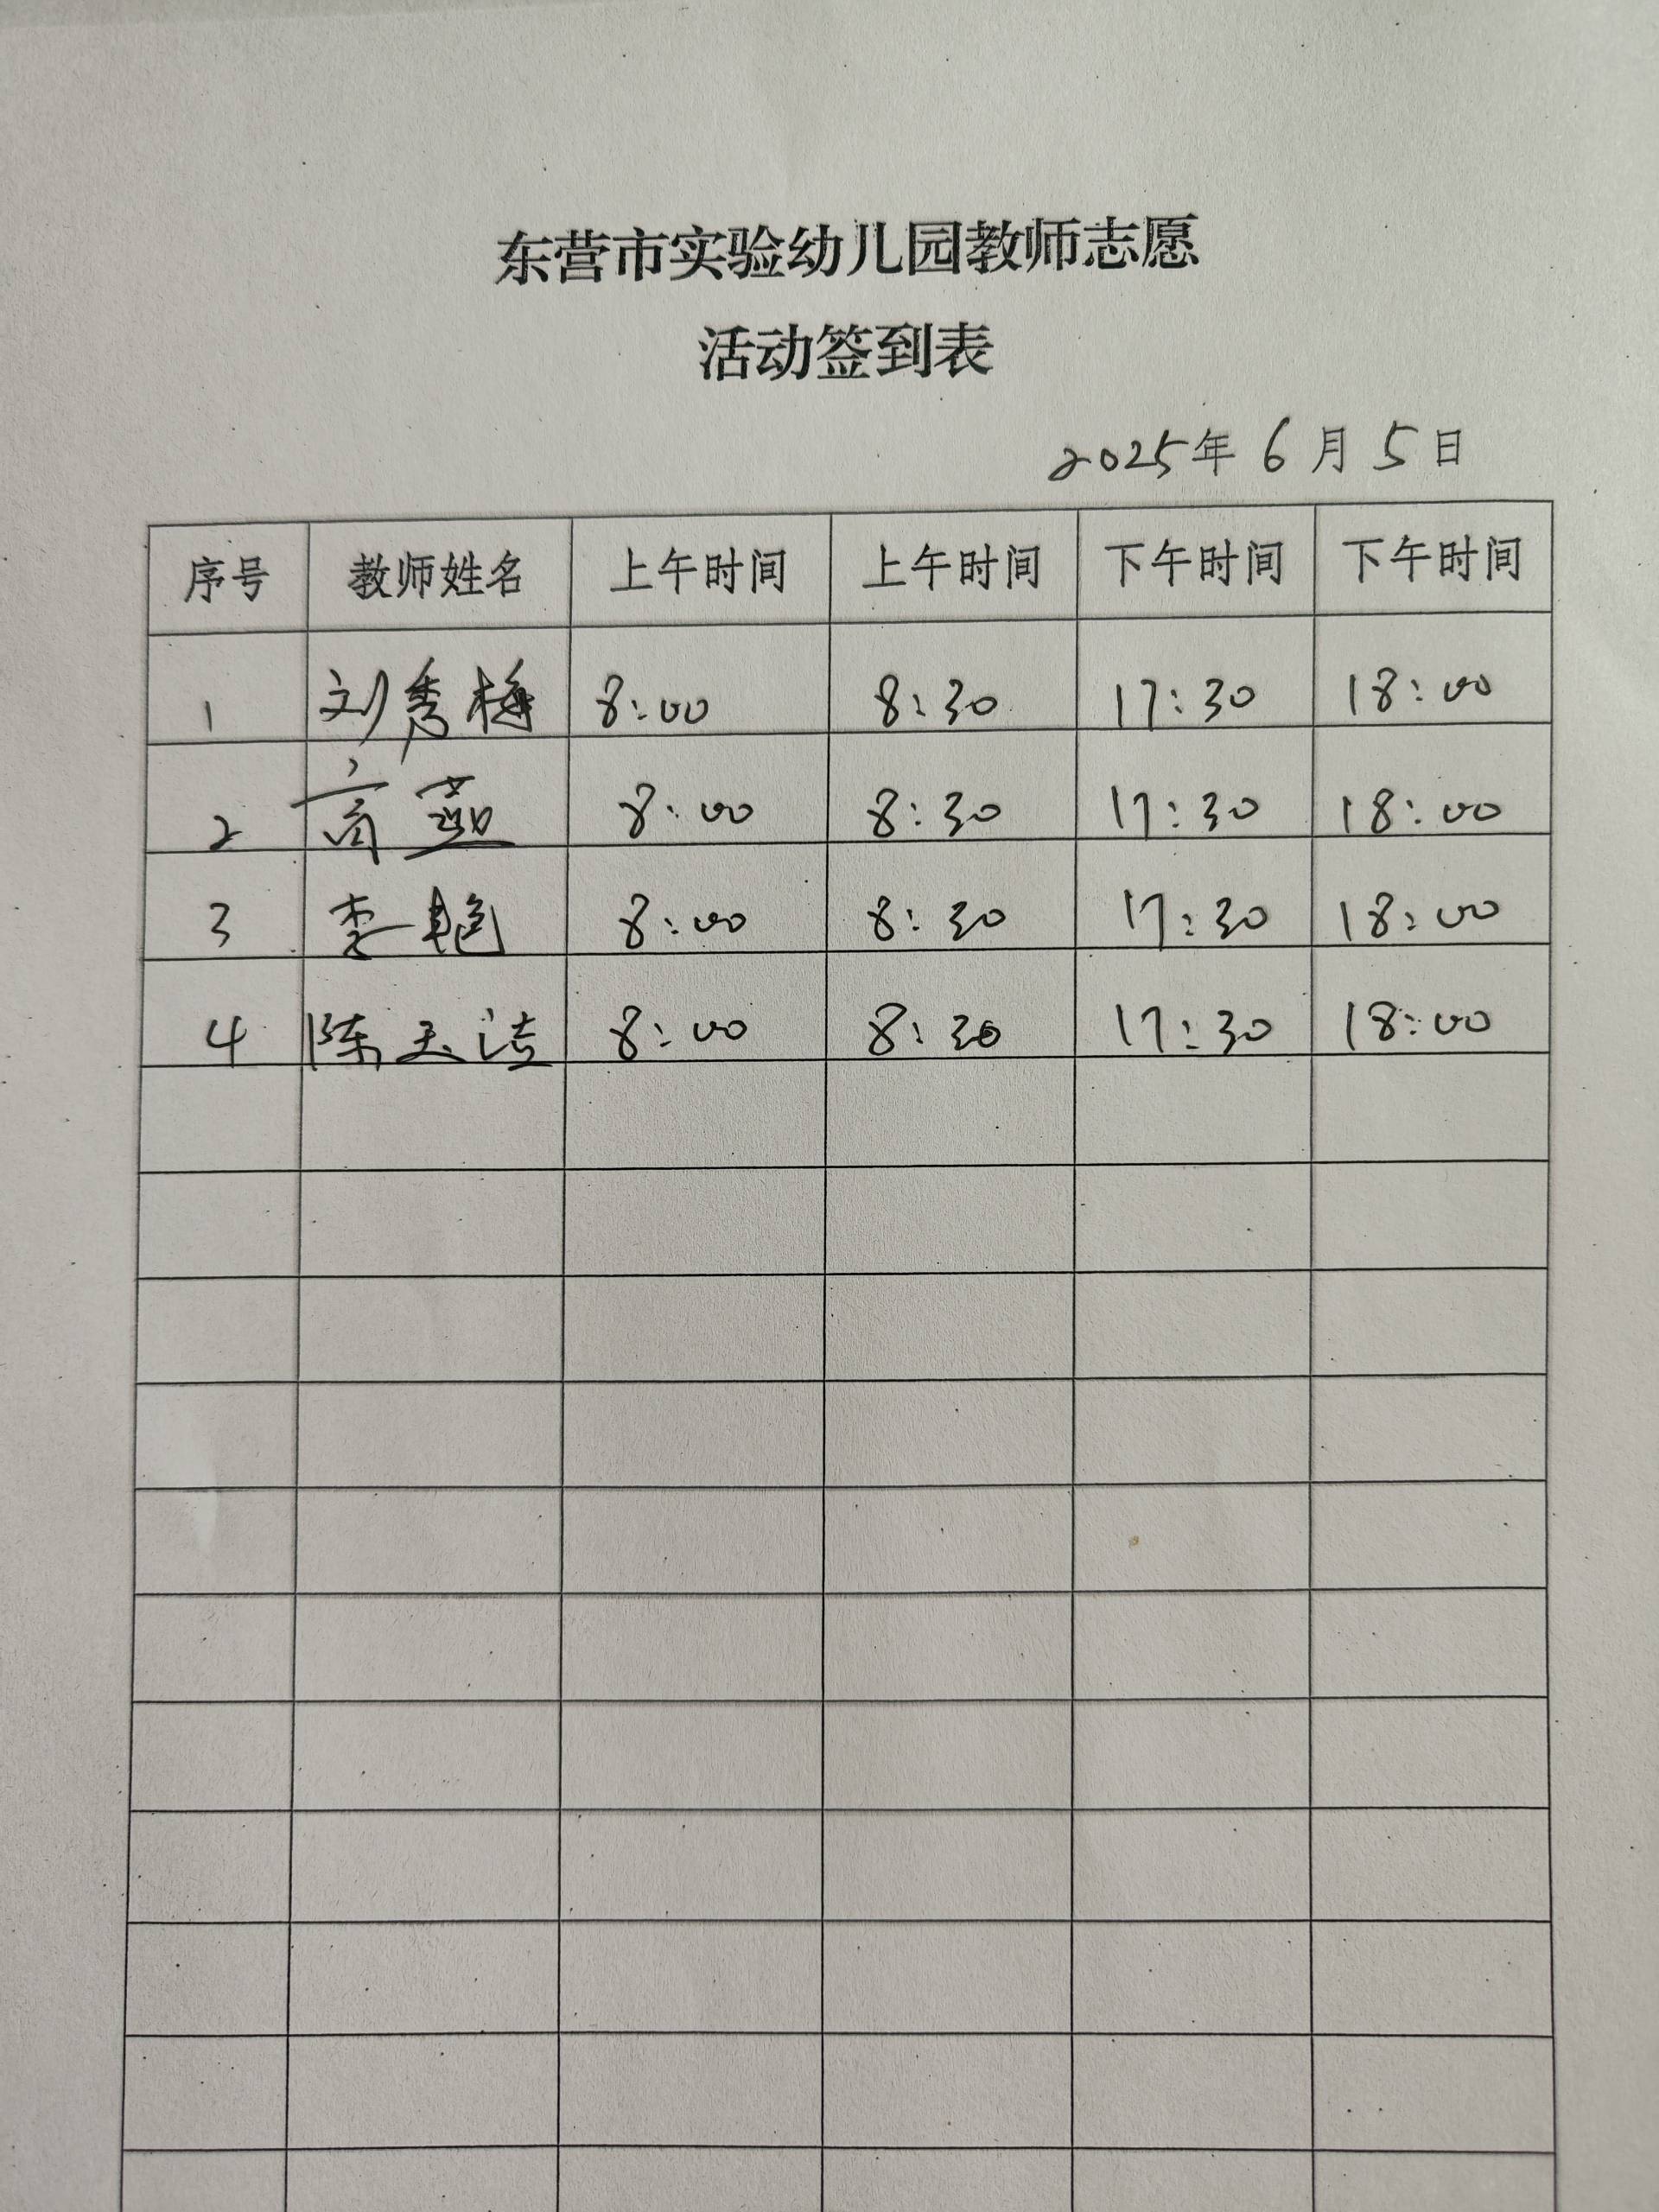 东营市实验幼儿园教师志愿
活动签到表
2025年 6 月 5 日
序号 教师姓名 上午时间 上午时间 下午时间 下午时间
1 刘秀梅 8:00 8:30 17:30 18:00
2 高燕 8:00 8:30 17:30 18:00
3 李艳 8:00 8:30 17:30 18:00
4 陈玉洁 8:00 8:30 17:30 18:00